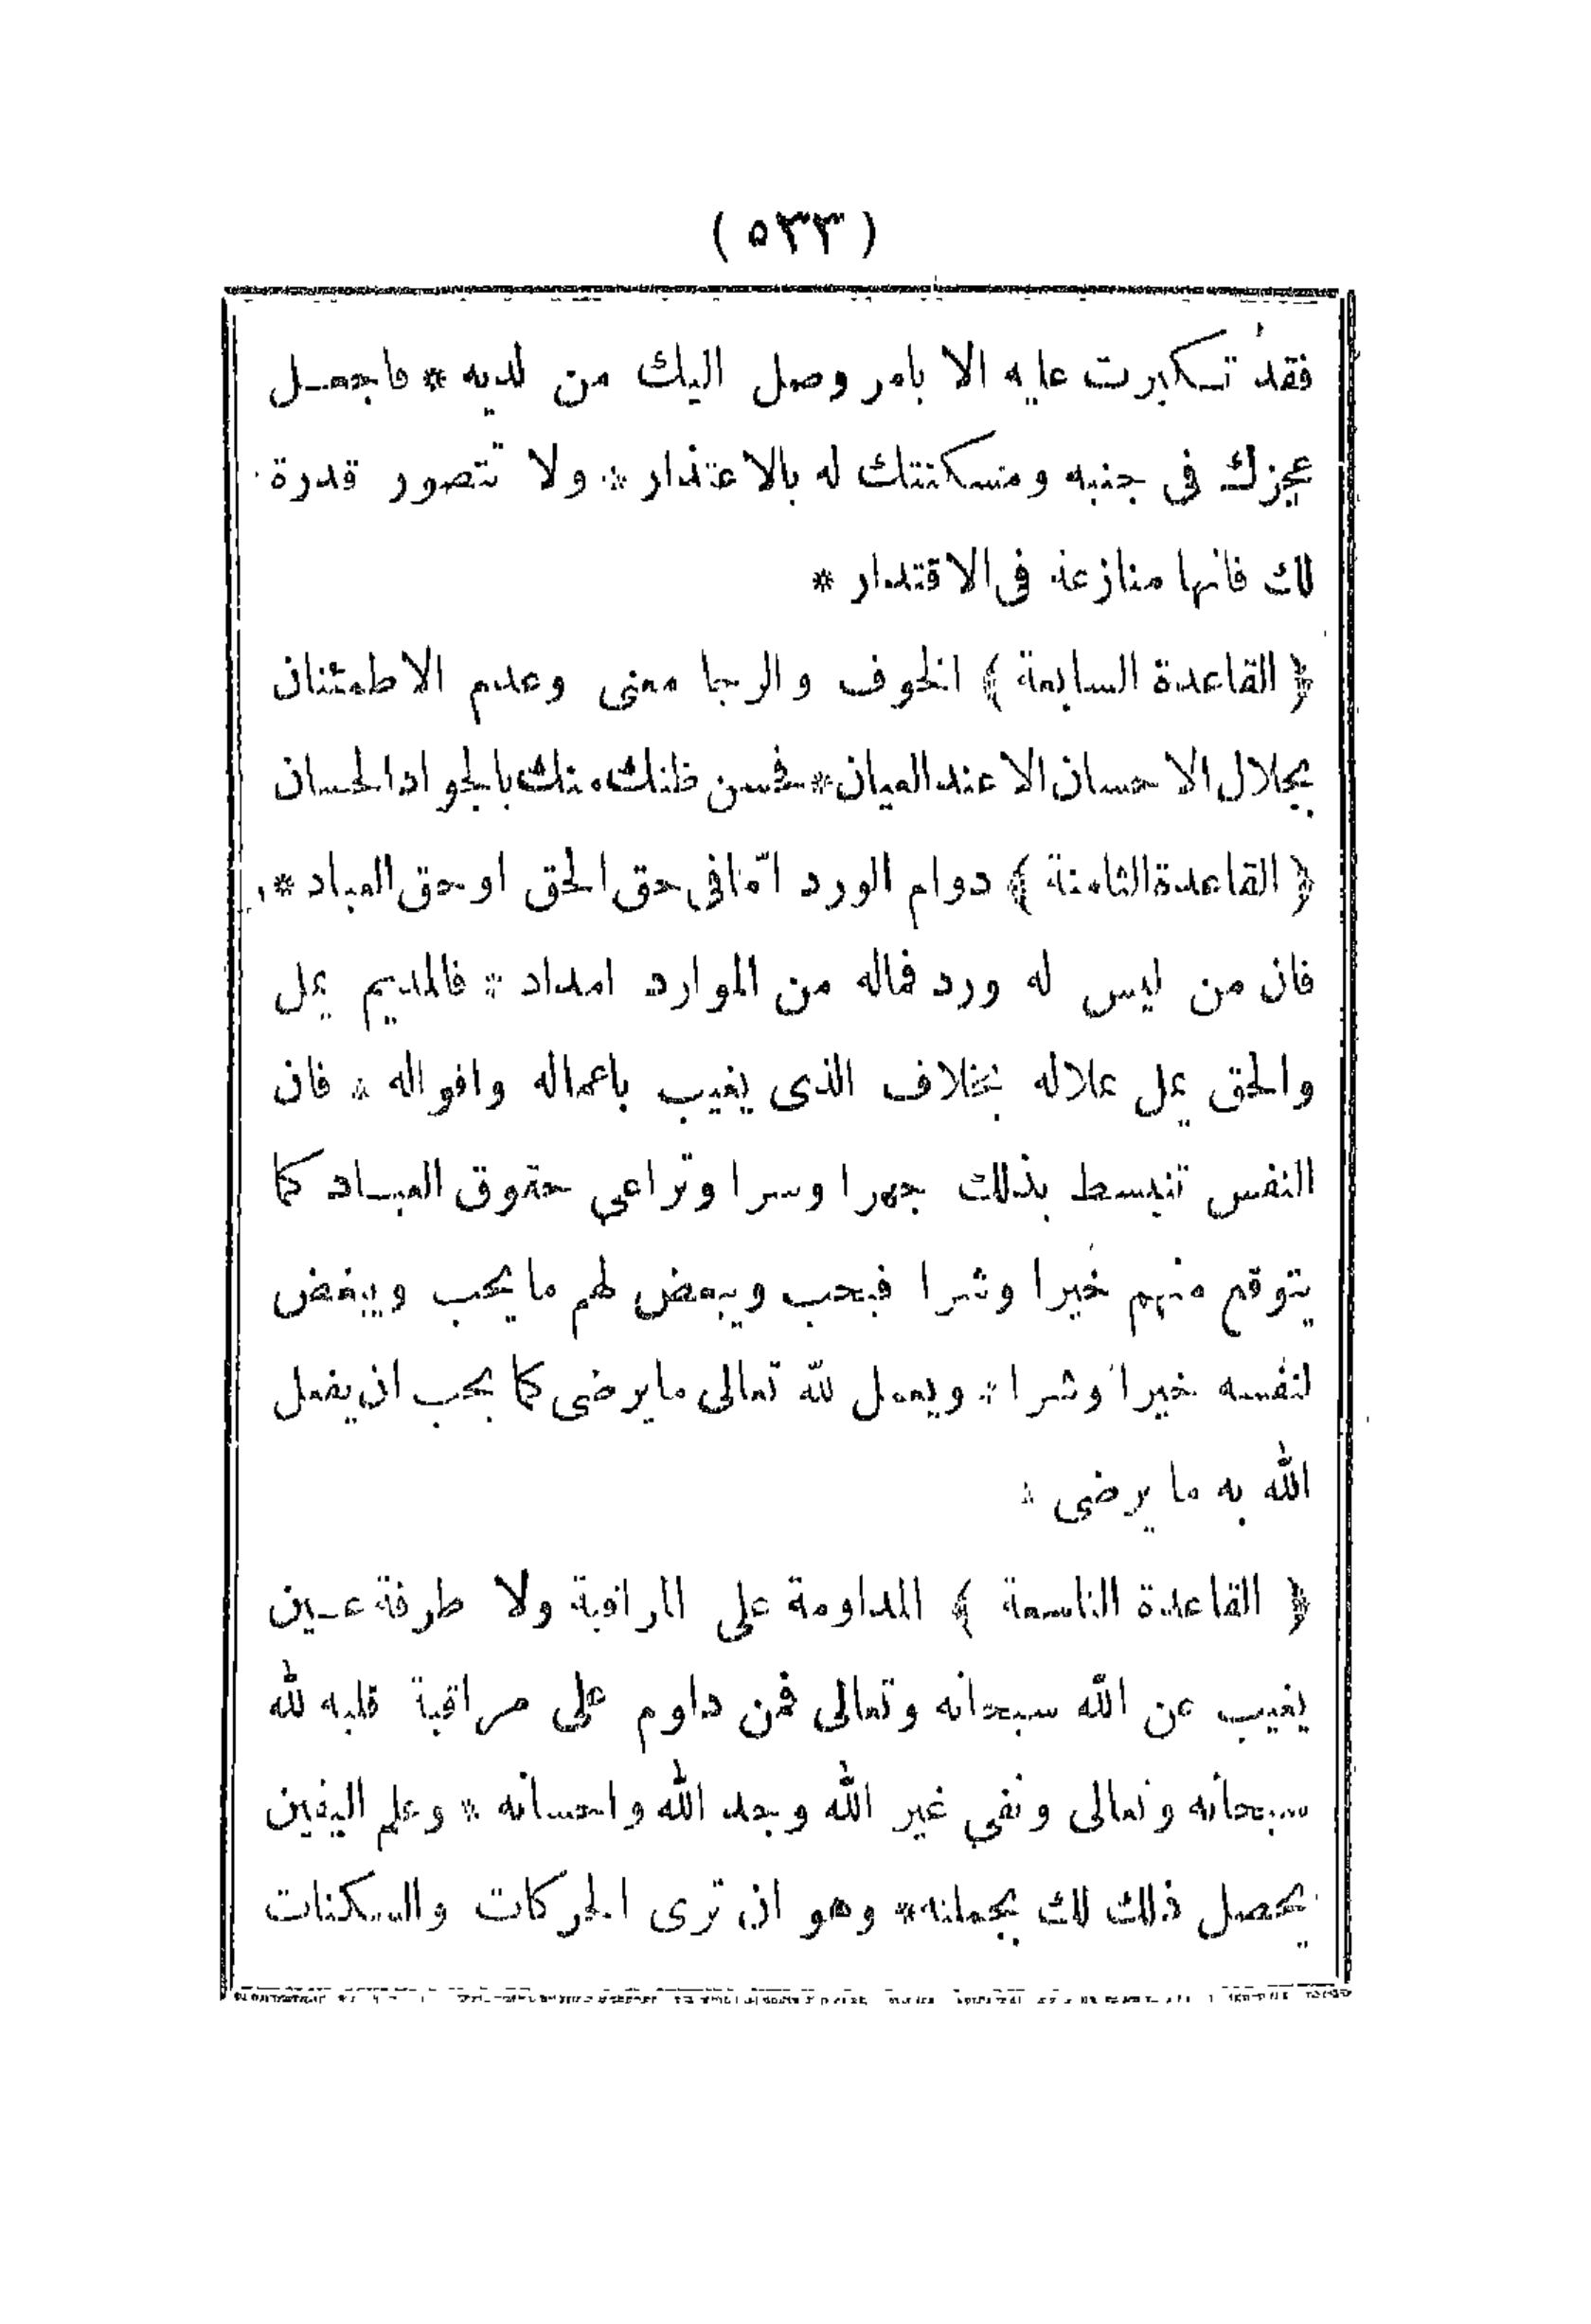 ( ٥٣٣ )
فقد تكبرت عليه الا بامر وصل اليك من لديه * فاجعل
عجزك فى جنبه ومسكنتك له بالاعتذار * ولا تتصور قدرة
لك فانها منازعة فى الاقتدار *
﴿ القاعدة السابعة ﴾ الخوف والرجا معنى وعدم الاطمئنان
بجلال الاحسان الا عند العيان * فحسن ظنك منك بالجواد الحسان
﴿ القاعدة الثامنة ﴾ دوام الورد امّا فى حق الحق او حق العباد *
فان من ليس له ورد فماله من الموارد امداد * فالمديم يمل
والحق يمل علاله بخلاف الذى يغيب باعماله واقواله * فان
النفس تنبسط بذلك جهرا وسرا وتراعي حقوق العباد كما
يتوقع منهم خيرا وشرا فيحب ويبغض لهم ما يحب ويبغض
لنفسه خيرا وشرا * ويعمل لله تعالى ما يرضى كما يحب ان يفعل
الله به ما يرضى *
﴿ القاعدة التاسعة ﴾ المداومة على المراقبة ولا طرفة عين
يغيب عن الله سبحانه وتعالى فمن داوم على مراقبة قلبه لله
سبحانه وتعالى ونفي غير الله وجد الله واحسانه * وعلم اليقين
يحصل ذلك لك بجملته * وهو ان ترى الحركات والسكنات